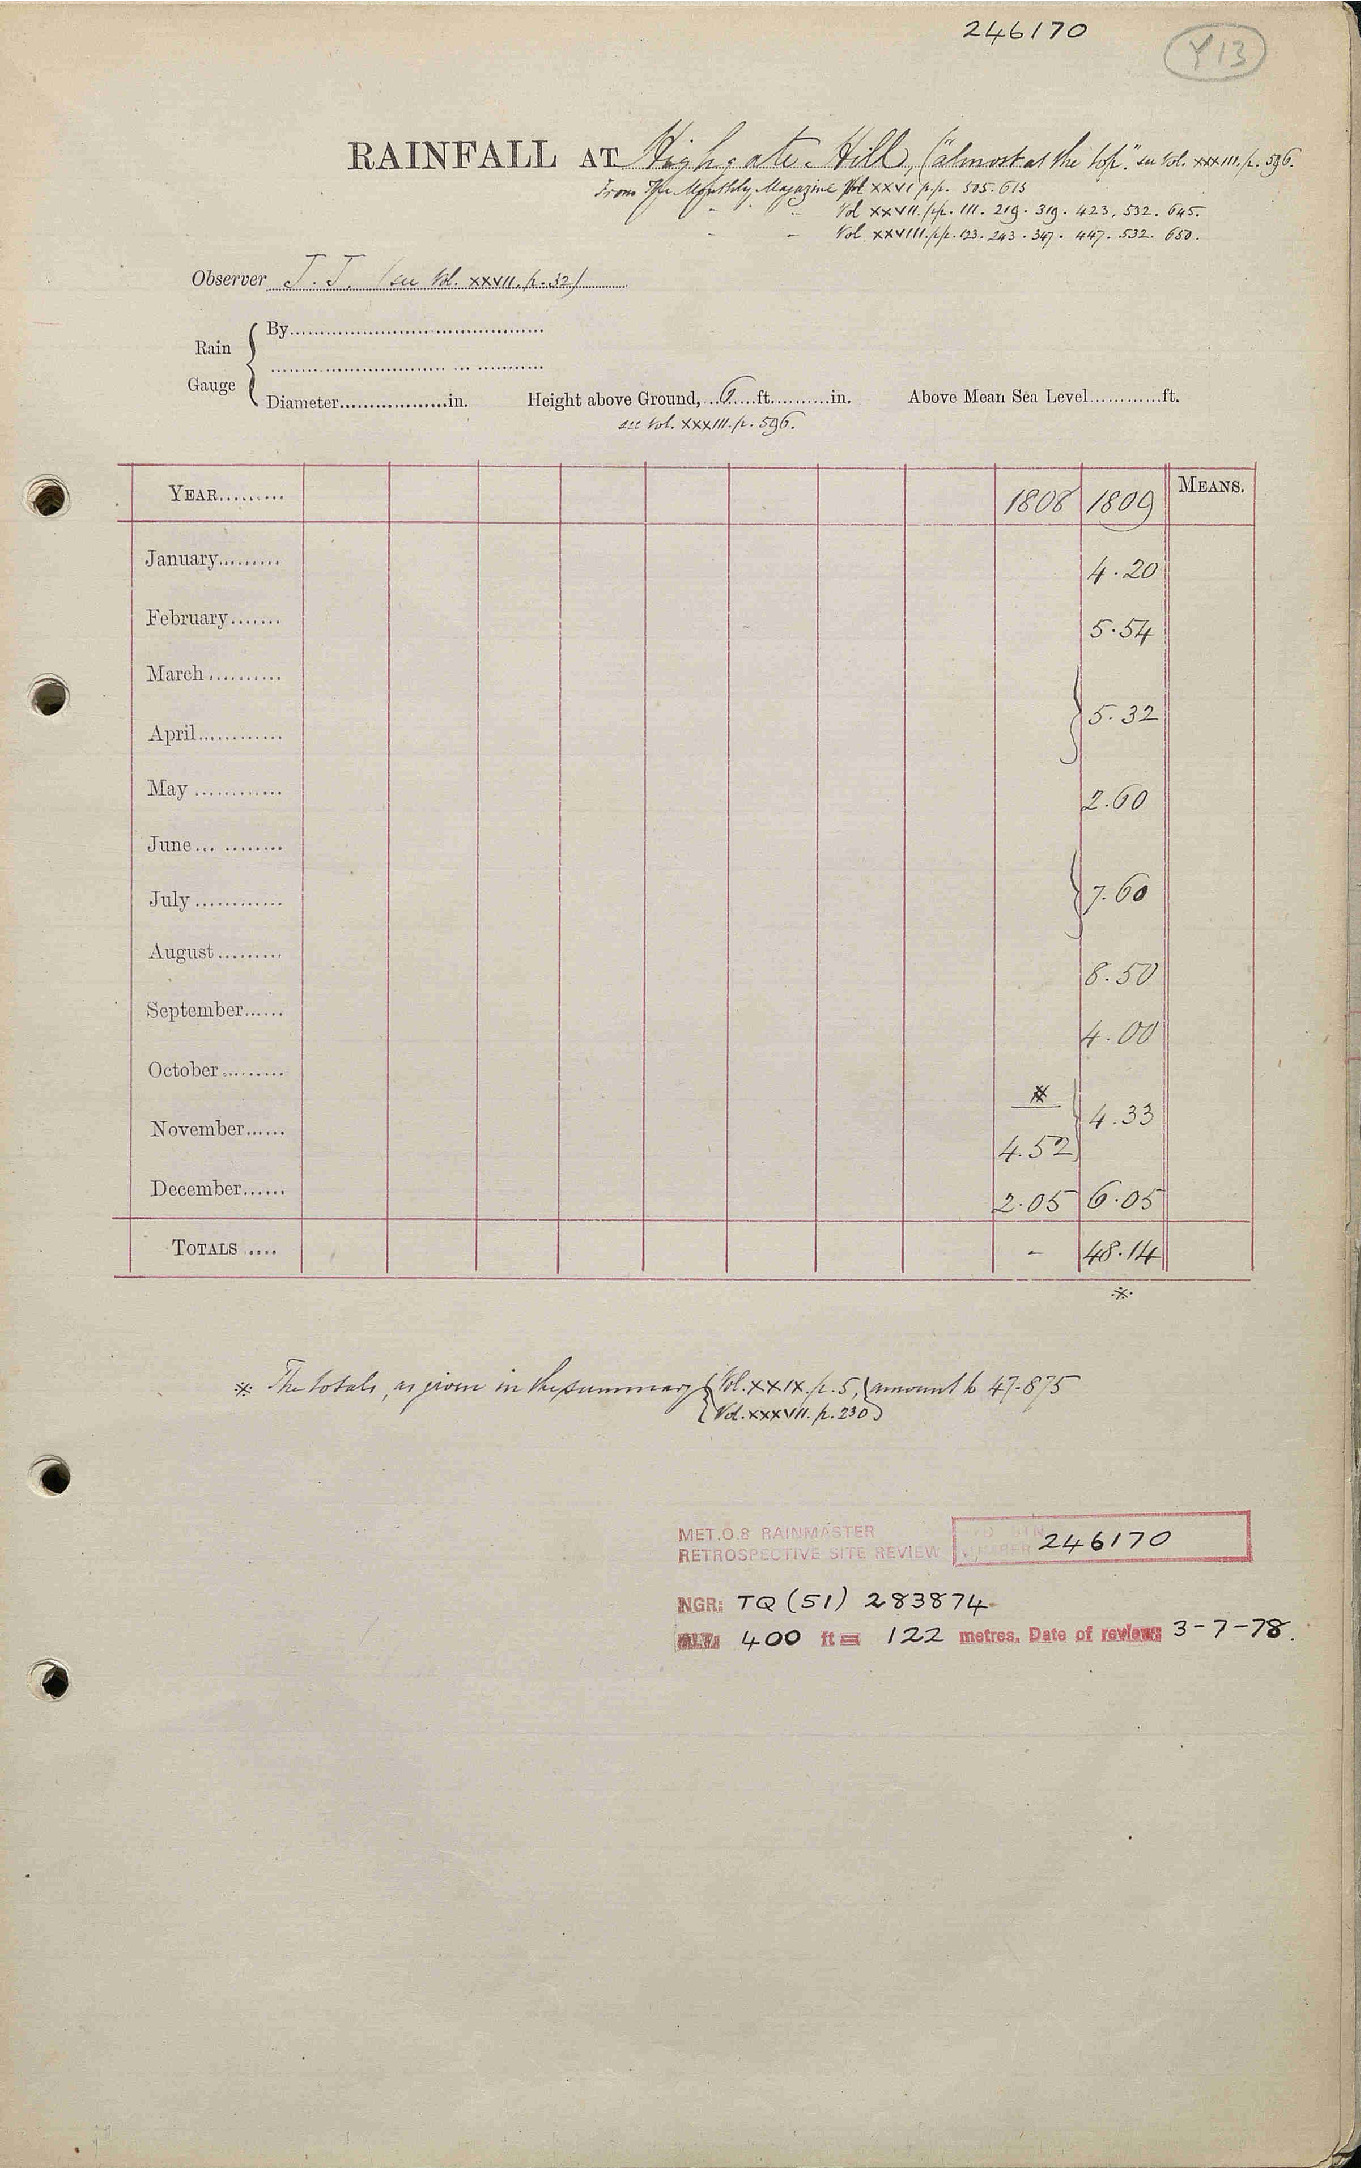 246170
Y13
RAINFALL AT Highgate Hill, ("almost at the top." see Vol. XXXIII. p. 596.
From The Monthly Magazine Vol XXVI pp. 505. 615
" " Vol XXVII. pp. 111. 219. 319. 423. 532. 645.
" " Vol XXVIII. pp. 123. 243. 347. 447. 532. 650.
Observer J. J. (see Vol. XXVII. p. 32)
Rain Gauge { By
Diameter in. Height above Ground, 6 ft. in. Above Mean Sea Level ft.
see Vol. XXXIII. p. 596.
YEAR 1808 1809 MEANS.
January 4.20
February 5.54
March
April } 5.32
May 2.60
June
July } 7.60
August 8.50
September 4.00
October *
November 4.52 } 4.33
December 2.05 6.05
TOTALS - 48.14
*
* The totals, as given in the summary { Vol. XXIX. p. 5, } amount to 47.875
{ Vol. XXXVII. p. 230 }
MET.O.8 RAINMASTER
RETROSPECTIVE SITE REVIEW STN NUMBER 246170
NGR: TQ (51) 283874
ALT: 400 ft = 122 metres. Date of review: 3-7-78.